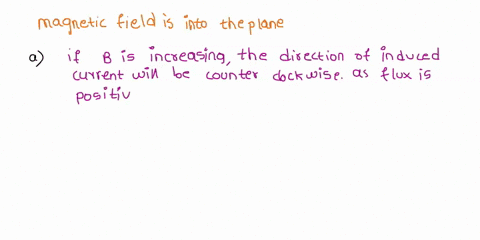 magnetic field is into the plane
a) if B is increasing, the direction of induced
current will be counter clockwise. as flux is
positiv